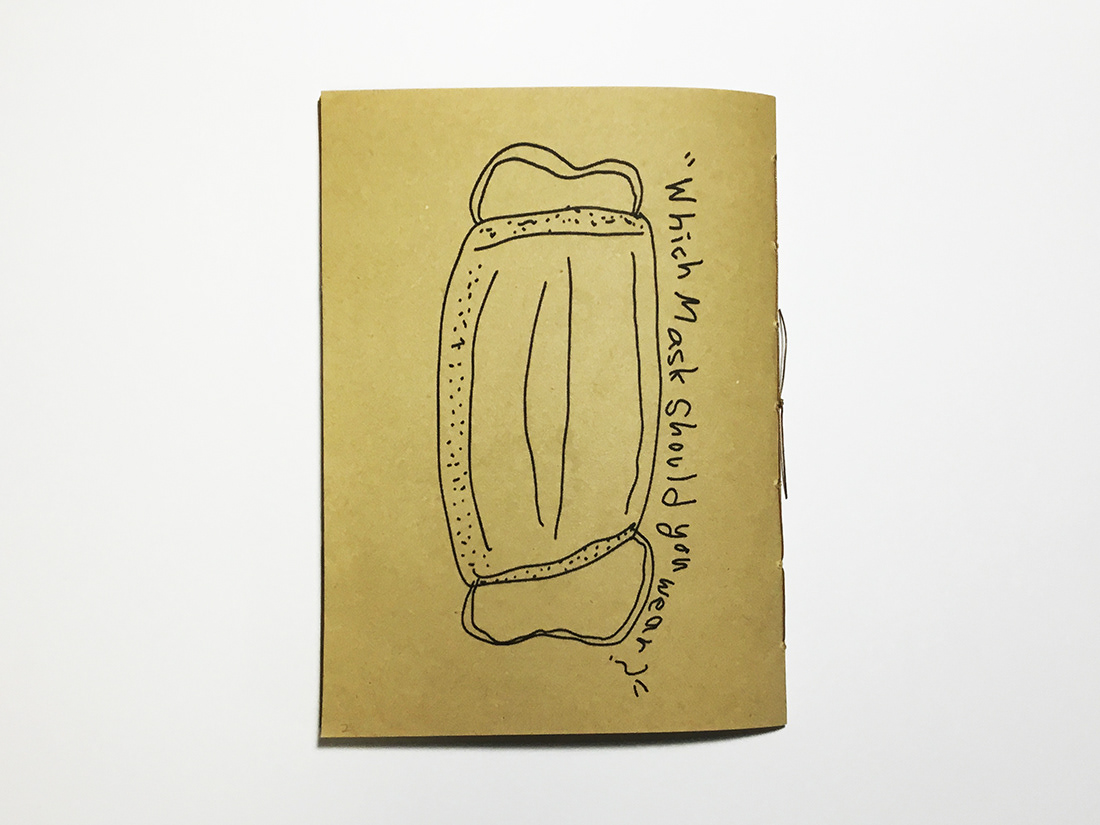 "Which Mask Should you wear?"